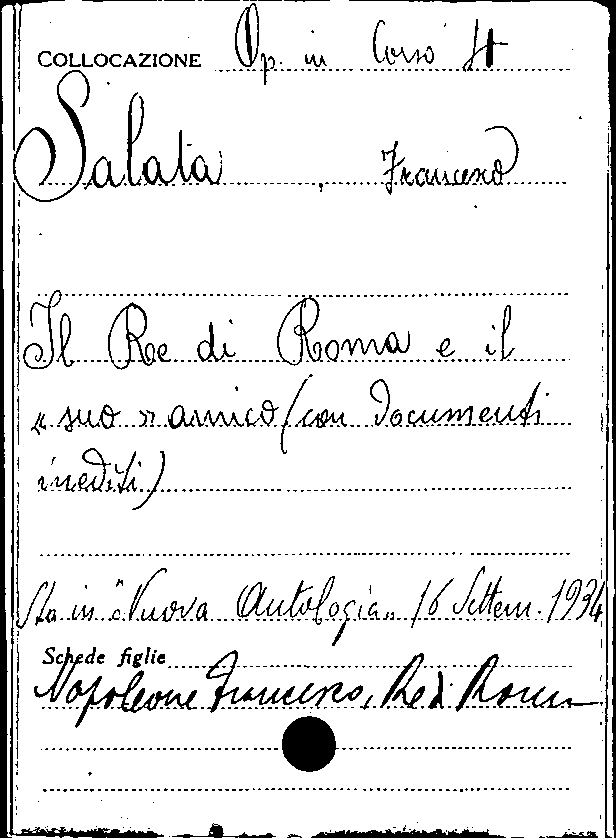 COLLOCAZIONE Op. in Corso 4
Salata, Francesco
Il Re di Roma e il
« suo » amico (con documenti
inediti)
Sta in "Nuova Antologia" 16 Settem. 1934
Schede figlie
Napoleone Francesco, Re di Roma